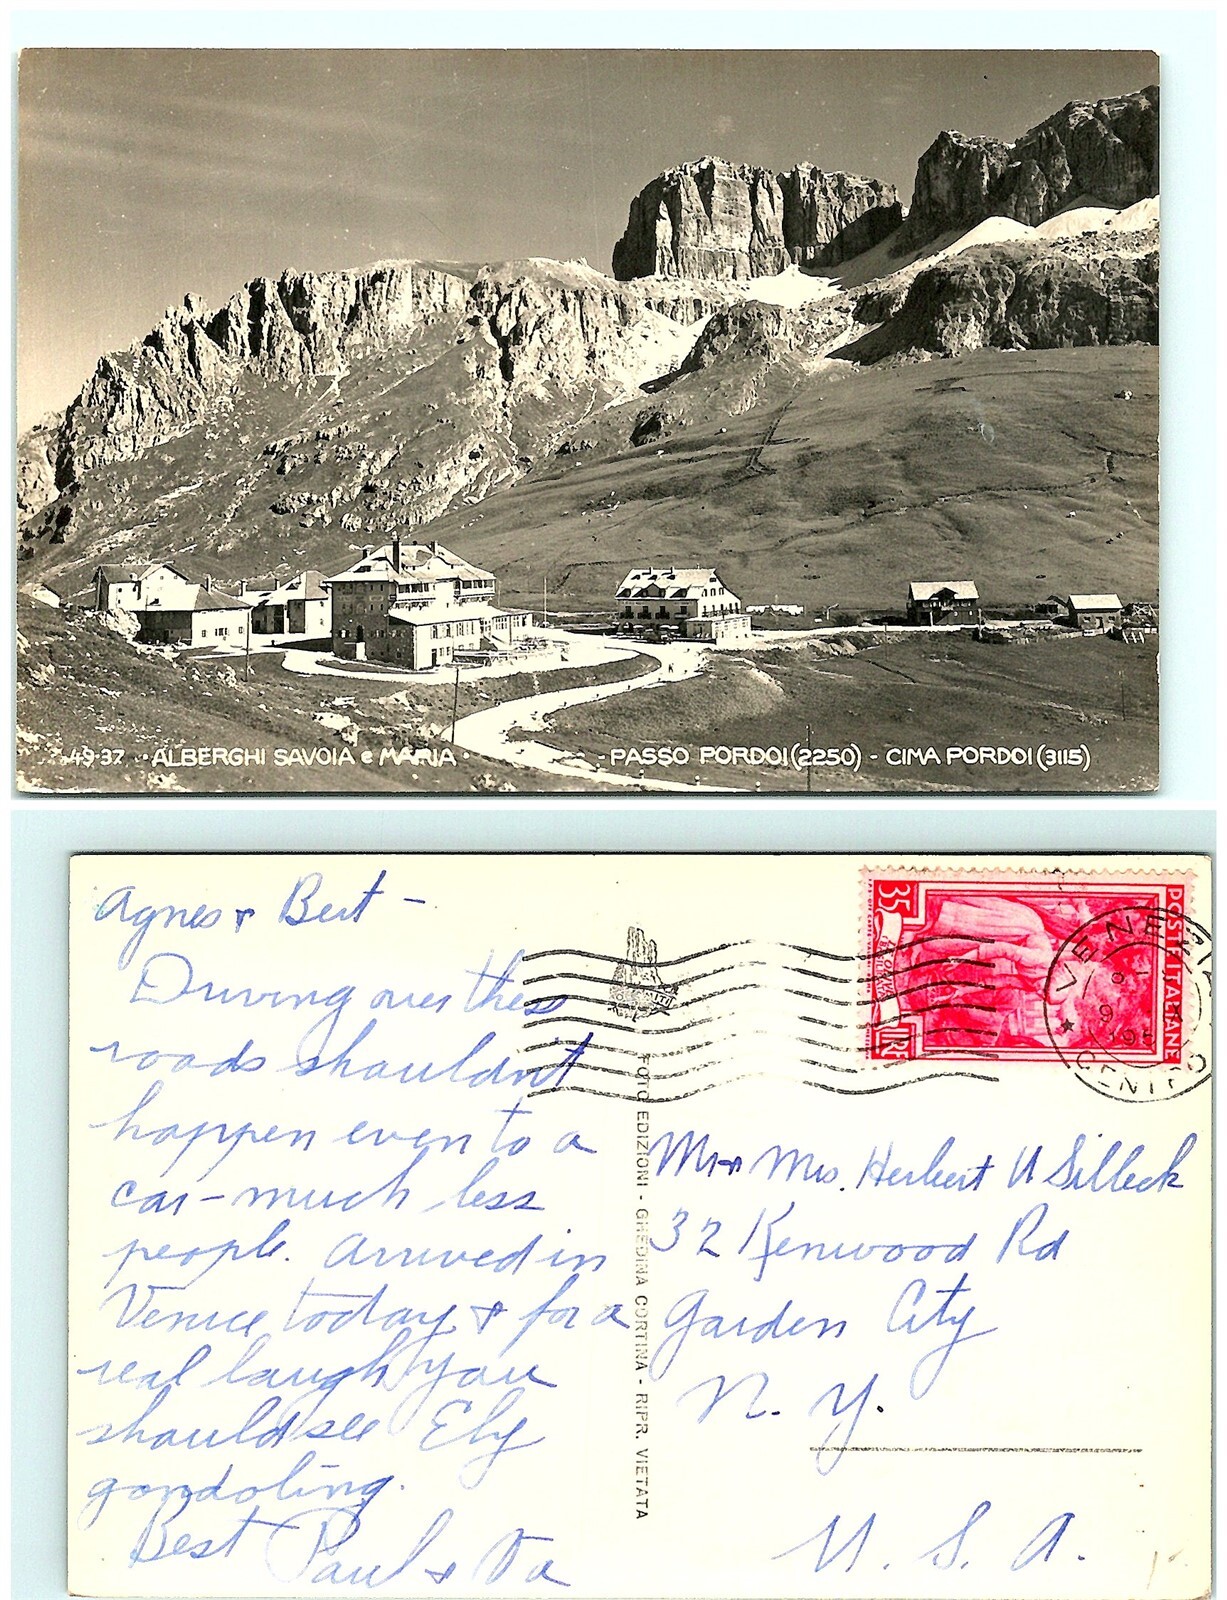 49-37 · ALBERGHI SAVOIA e MARIA · - PASSO PORDOI (2250) - CIMA PORDOI (3115)
Agnes & Bert -
Driving over these
roads shouldn't
happen even to a
car - much less
people. Arrived in
Venice today & for a
real laugh you
should see Ely
gondoling.
Best Paul &
FOTO EDIZIONI - GHEDINA CORTINA - RIPR. VIETATA
35
LIRE
POSTE ITALIANE
VENEZIA
CENTRO
Mr & Mrs. Herbert U Silleck
32 Kenwood Rd
Garden City
N. Y.
U. S. A.